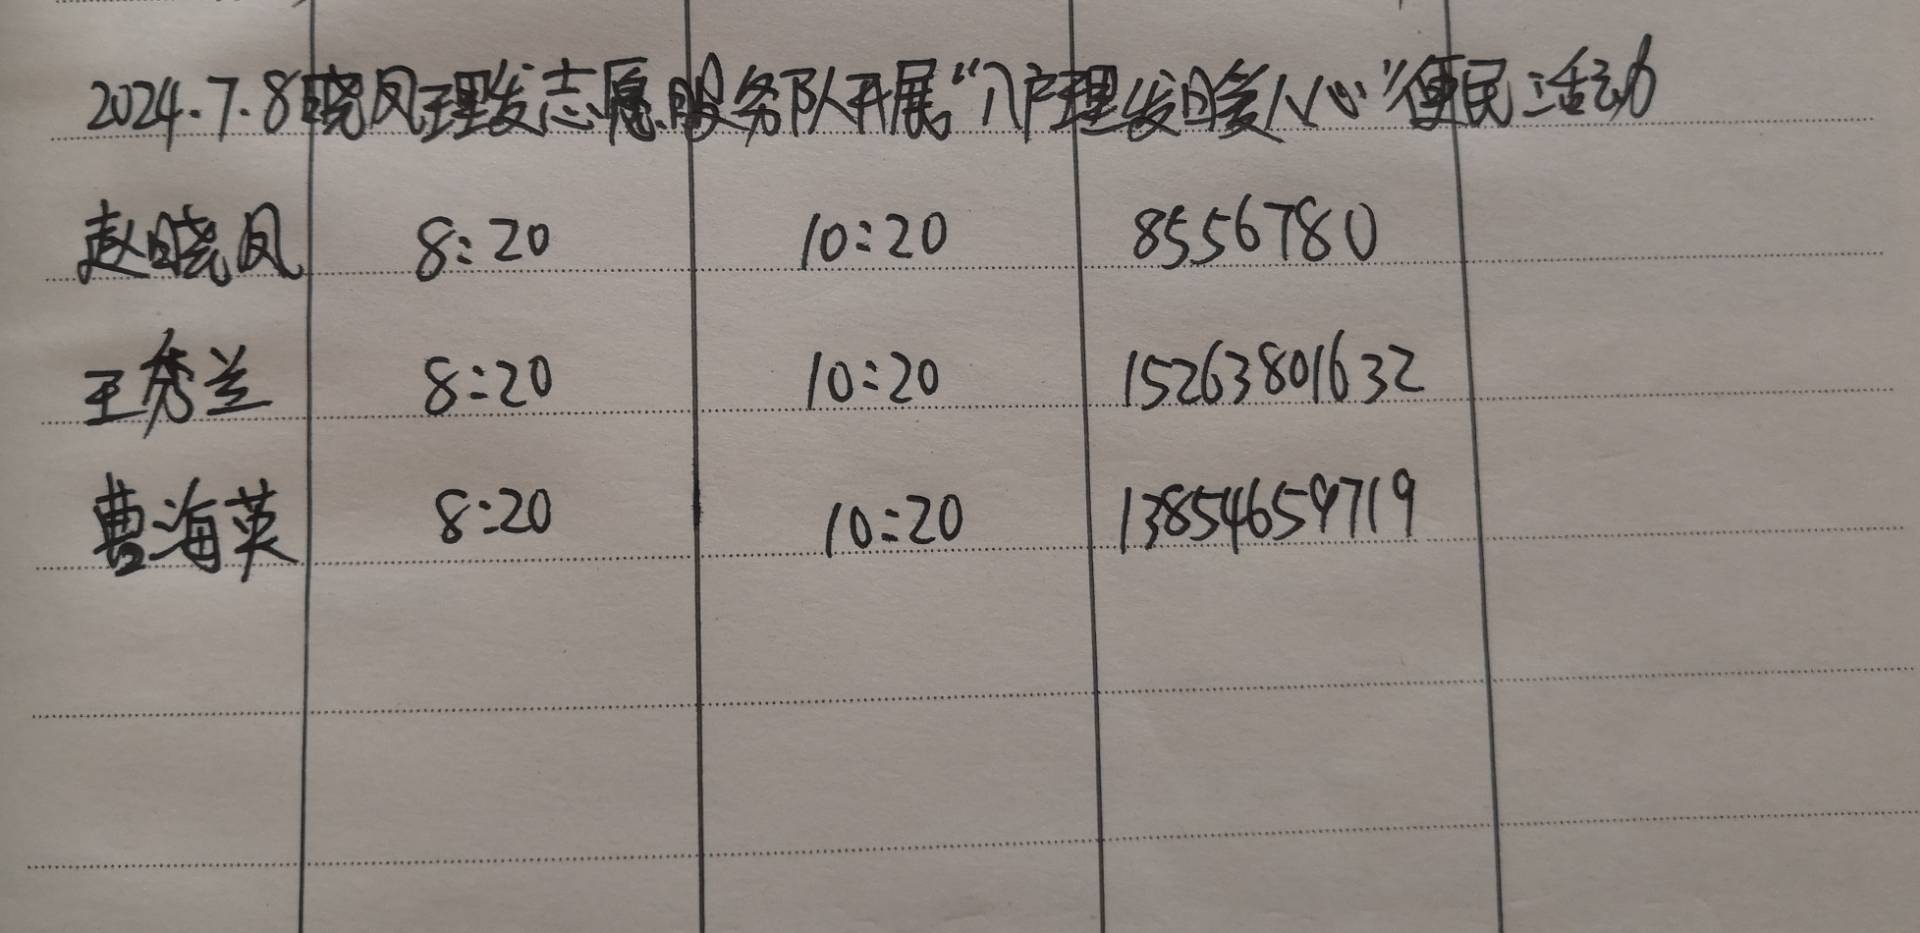 2024.7.8晓凤理发志愿服务队开展“入户理发暖人心”便民活动
赵晓凤 8:20 10:20 8556780
王秀兰 8:20 10:20 15263801632
曹海英 8:20 10:20 13854659719